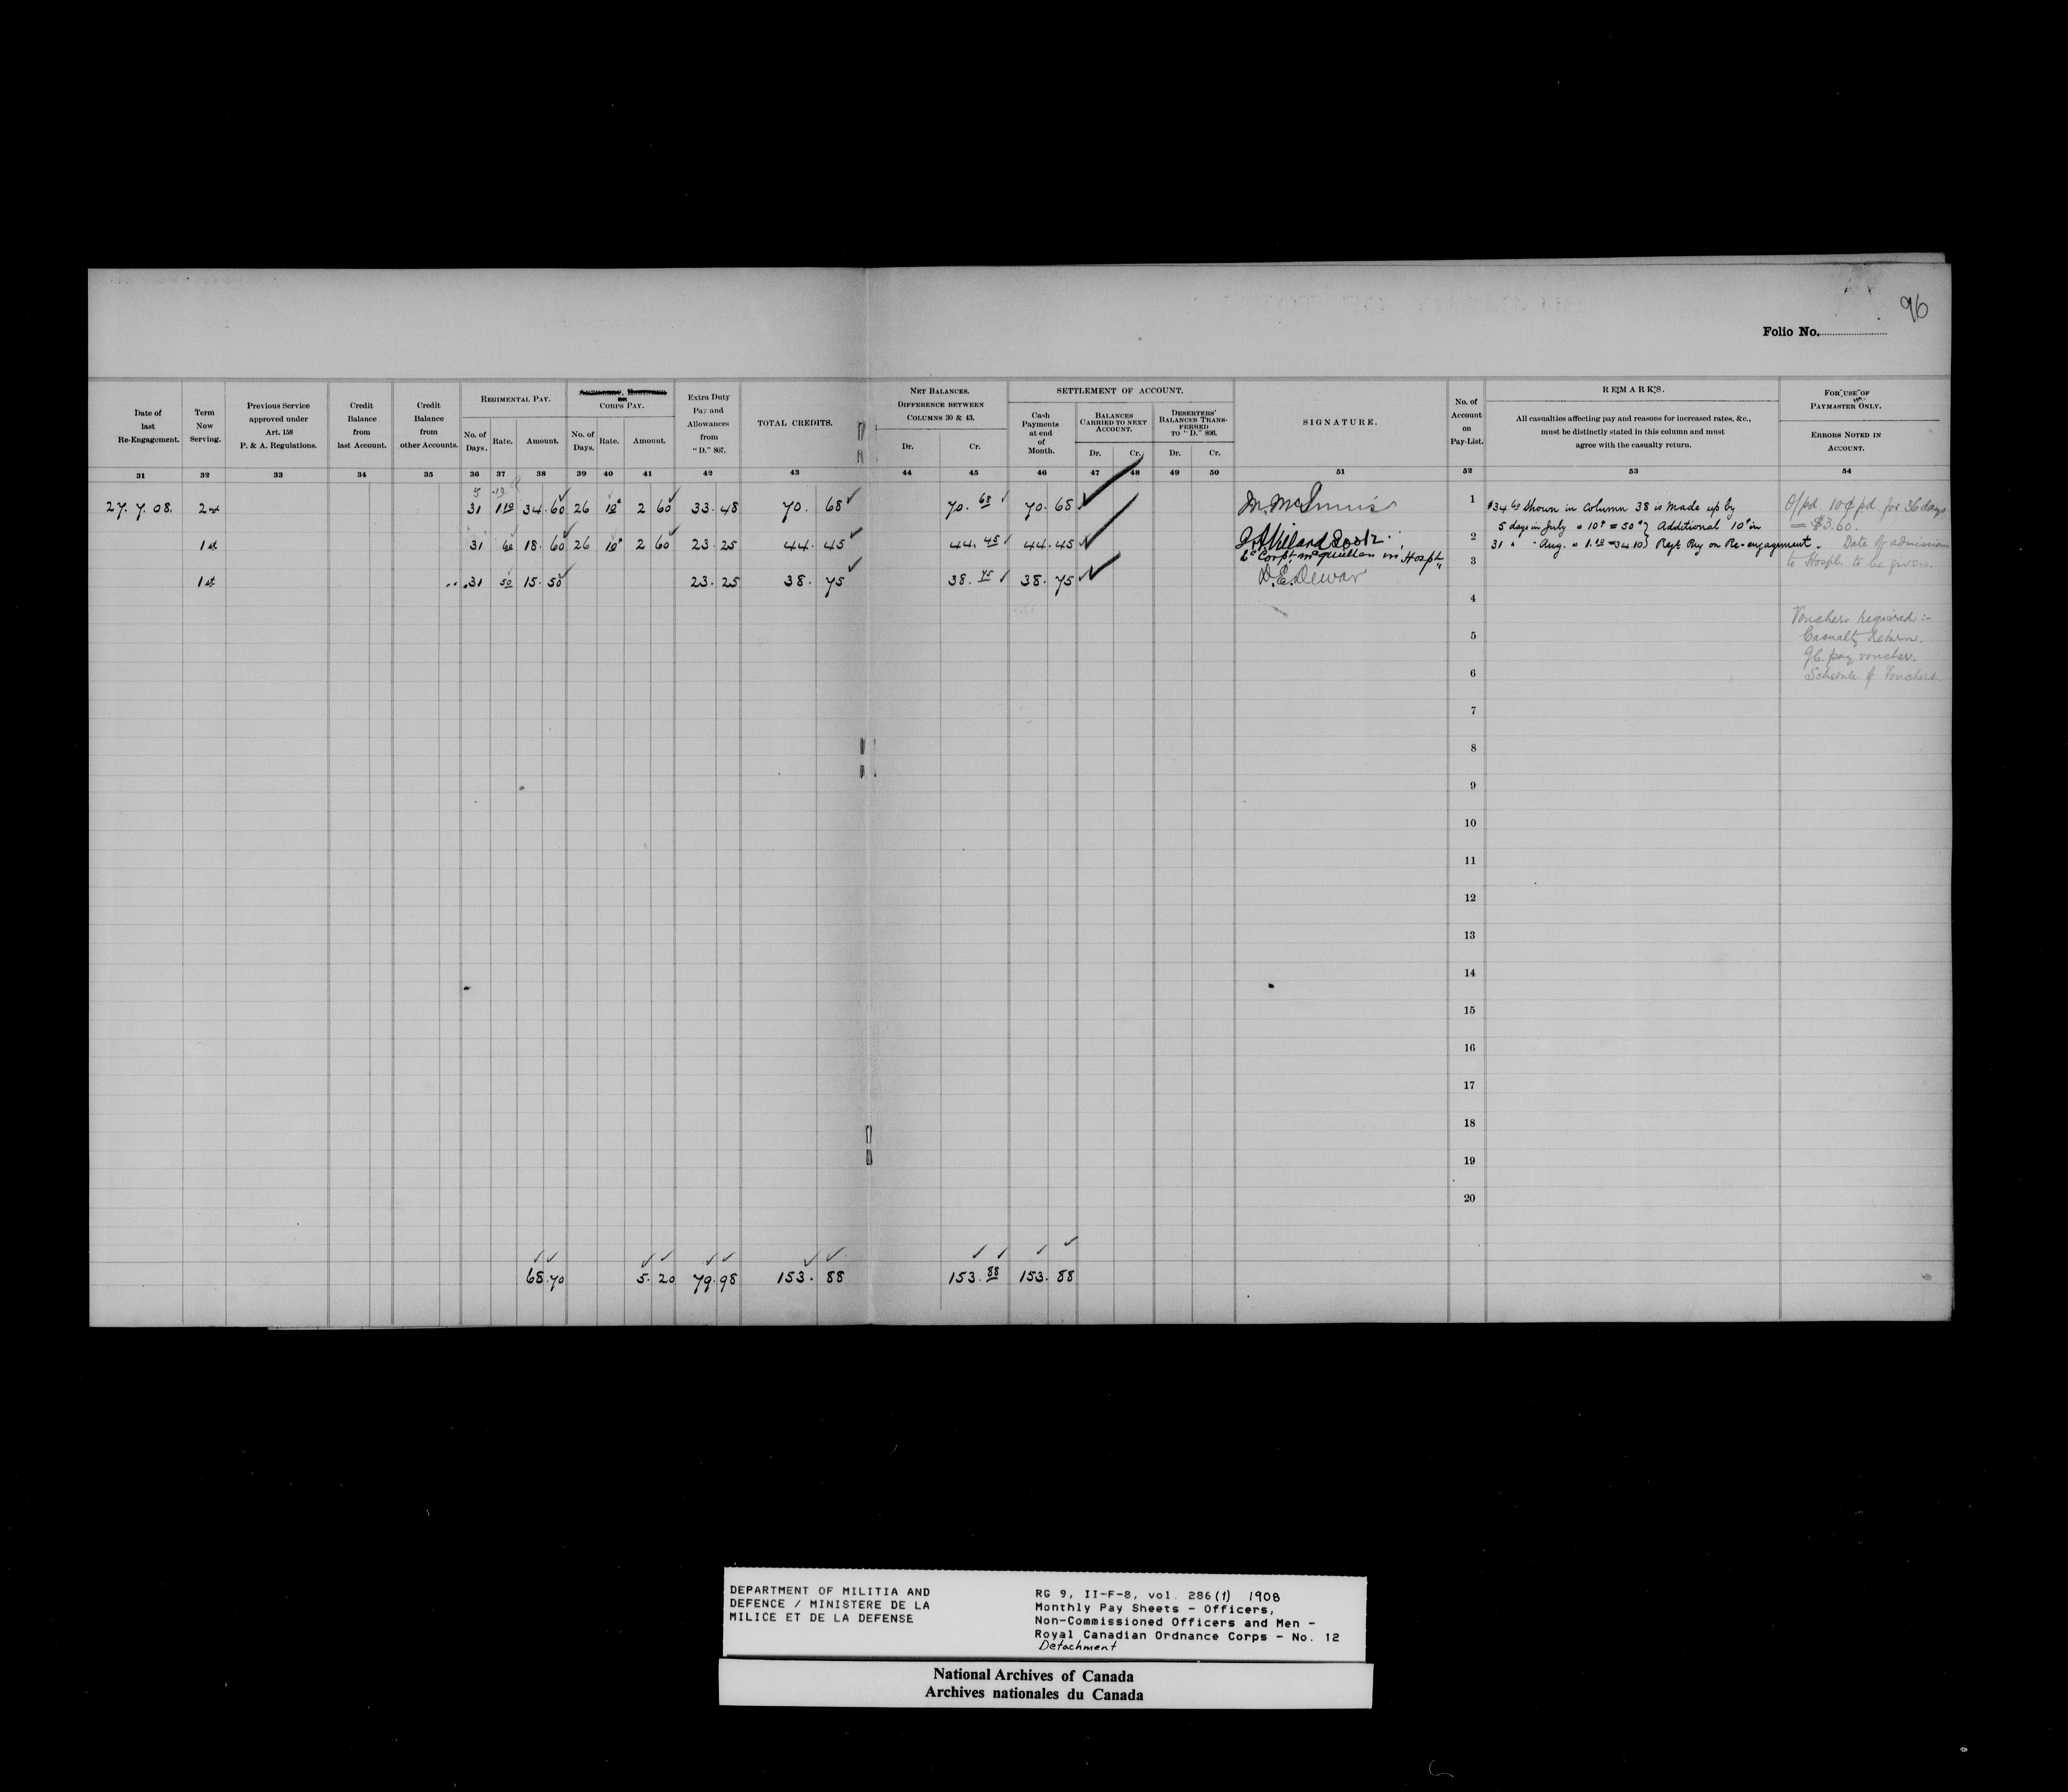 96
Folio No.
Date of last Re-Engagement.
Term Now Serving.
Previous Service approved under Art. 158 P. & A. Regulations.
Credit Balance from last Account.
Credit Balance from other Accounts.
REGIMENTAL PAY.
No. of Days. Rate. Amount.
OR
CORPS PAY.
No. of Days. Rate. Amount.
Extra Duty Pay and Allowances from "D." 807.
TOTAL CREDITS.
NET BALANCES.
DIFFERENCE BETWEEN COLUMNS 30 & 43.
Dr. Cr.
SETTLEMENT OF ACCOUNT.
Cash Payments at end of Month.
BALANCES CARRIED TO NEXT ACCOUNT.
Dr. Cr.
DESERTERS' BALANCES TRANSFERRED TO "D." 806.
Dr. Cr.
SIGNATURE.
No. of Account on Pay-List.
REMARKS.
All casualties affecting pay and reasons for increased rates, &c., must be distinctly stated in this column and must agree with the casualty return.
FOR USE OF PAYMASTER ONLY.
ERRORS NOTED IN ACCOUNT.
31 32 33 34 35 36 37 38 39 40 41 42 43 44 45 46 47 48 49 50 51 52 53 54
5
27. 7. 08. 2nd 31 1 10 34. 60 26 10c 2 60 33. 48 70. 68 70. 68 70. 68 M. McInnis 1 $34.60 shown in Column 38 is made up by O/pd. 10¢ pd. for 36 days
5 days in July @ 10c = 50c } Additional 10c in = $3.60.
1st 31 60 18. 60 26 10c 2 60 23. 25 44. 45 44. 45 44. 45 2
31 " " Aug. @ 1.10 = 34.10 } Regt. Pay on Re-engagement. Date of admission
Lc Corpl. McQuillan in Hospt. 3 to Hospl. to be given.
1st 31 50 15. 50 23. 25 38. 75 38. 75 38. 75 D. E. Dewar
4
Vouchers required :-
5 Casualty Return.
G.C. pay voucher.
6 Schedule of Vouchers.
7
8
9
10
11
12
13
14
15
16
17
18
19
20
68. 70 5. 20 79. 98 153. 88 153. 88 153. 88
DEPARTMENT OF MILITIA AND
DEFENCE / MINISTERE DE LA
MILICE ET DE LA DEFENSE
RG 9, II-F-8, vol. 286(1) 1908
Monthly Pay Sheets - Officers,
Non-Commissioned Officers and Men -
Royal Canadian Ordnance Corps - No. 12
Detachment
National Archives of Canada
Archives nationales du Canada